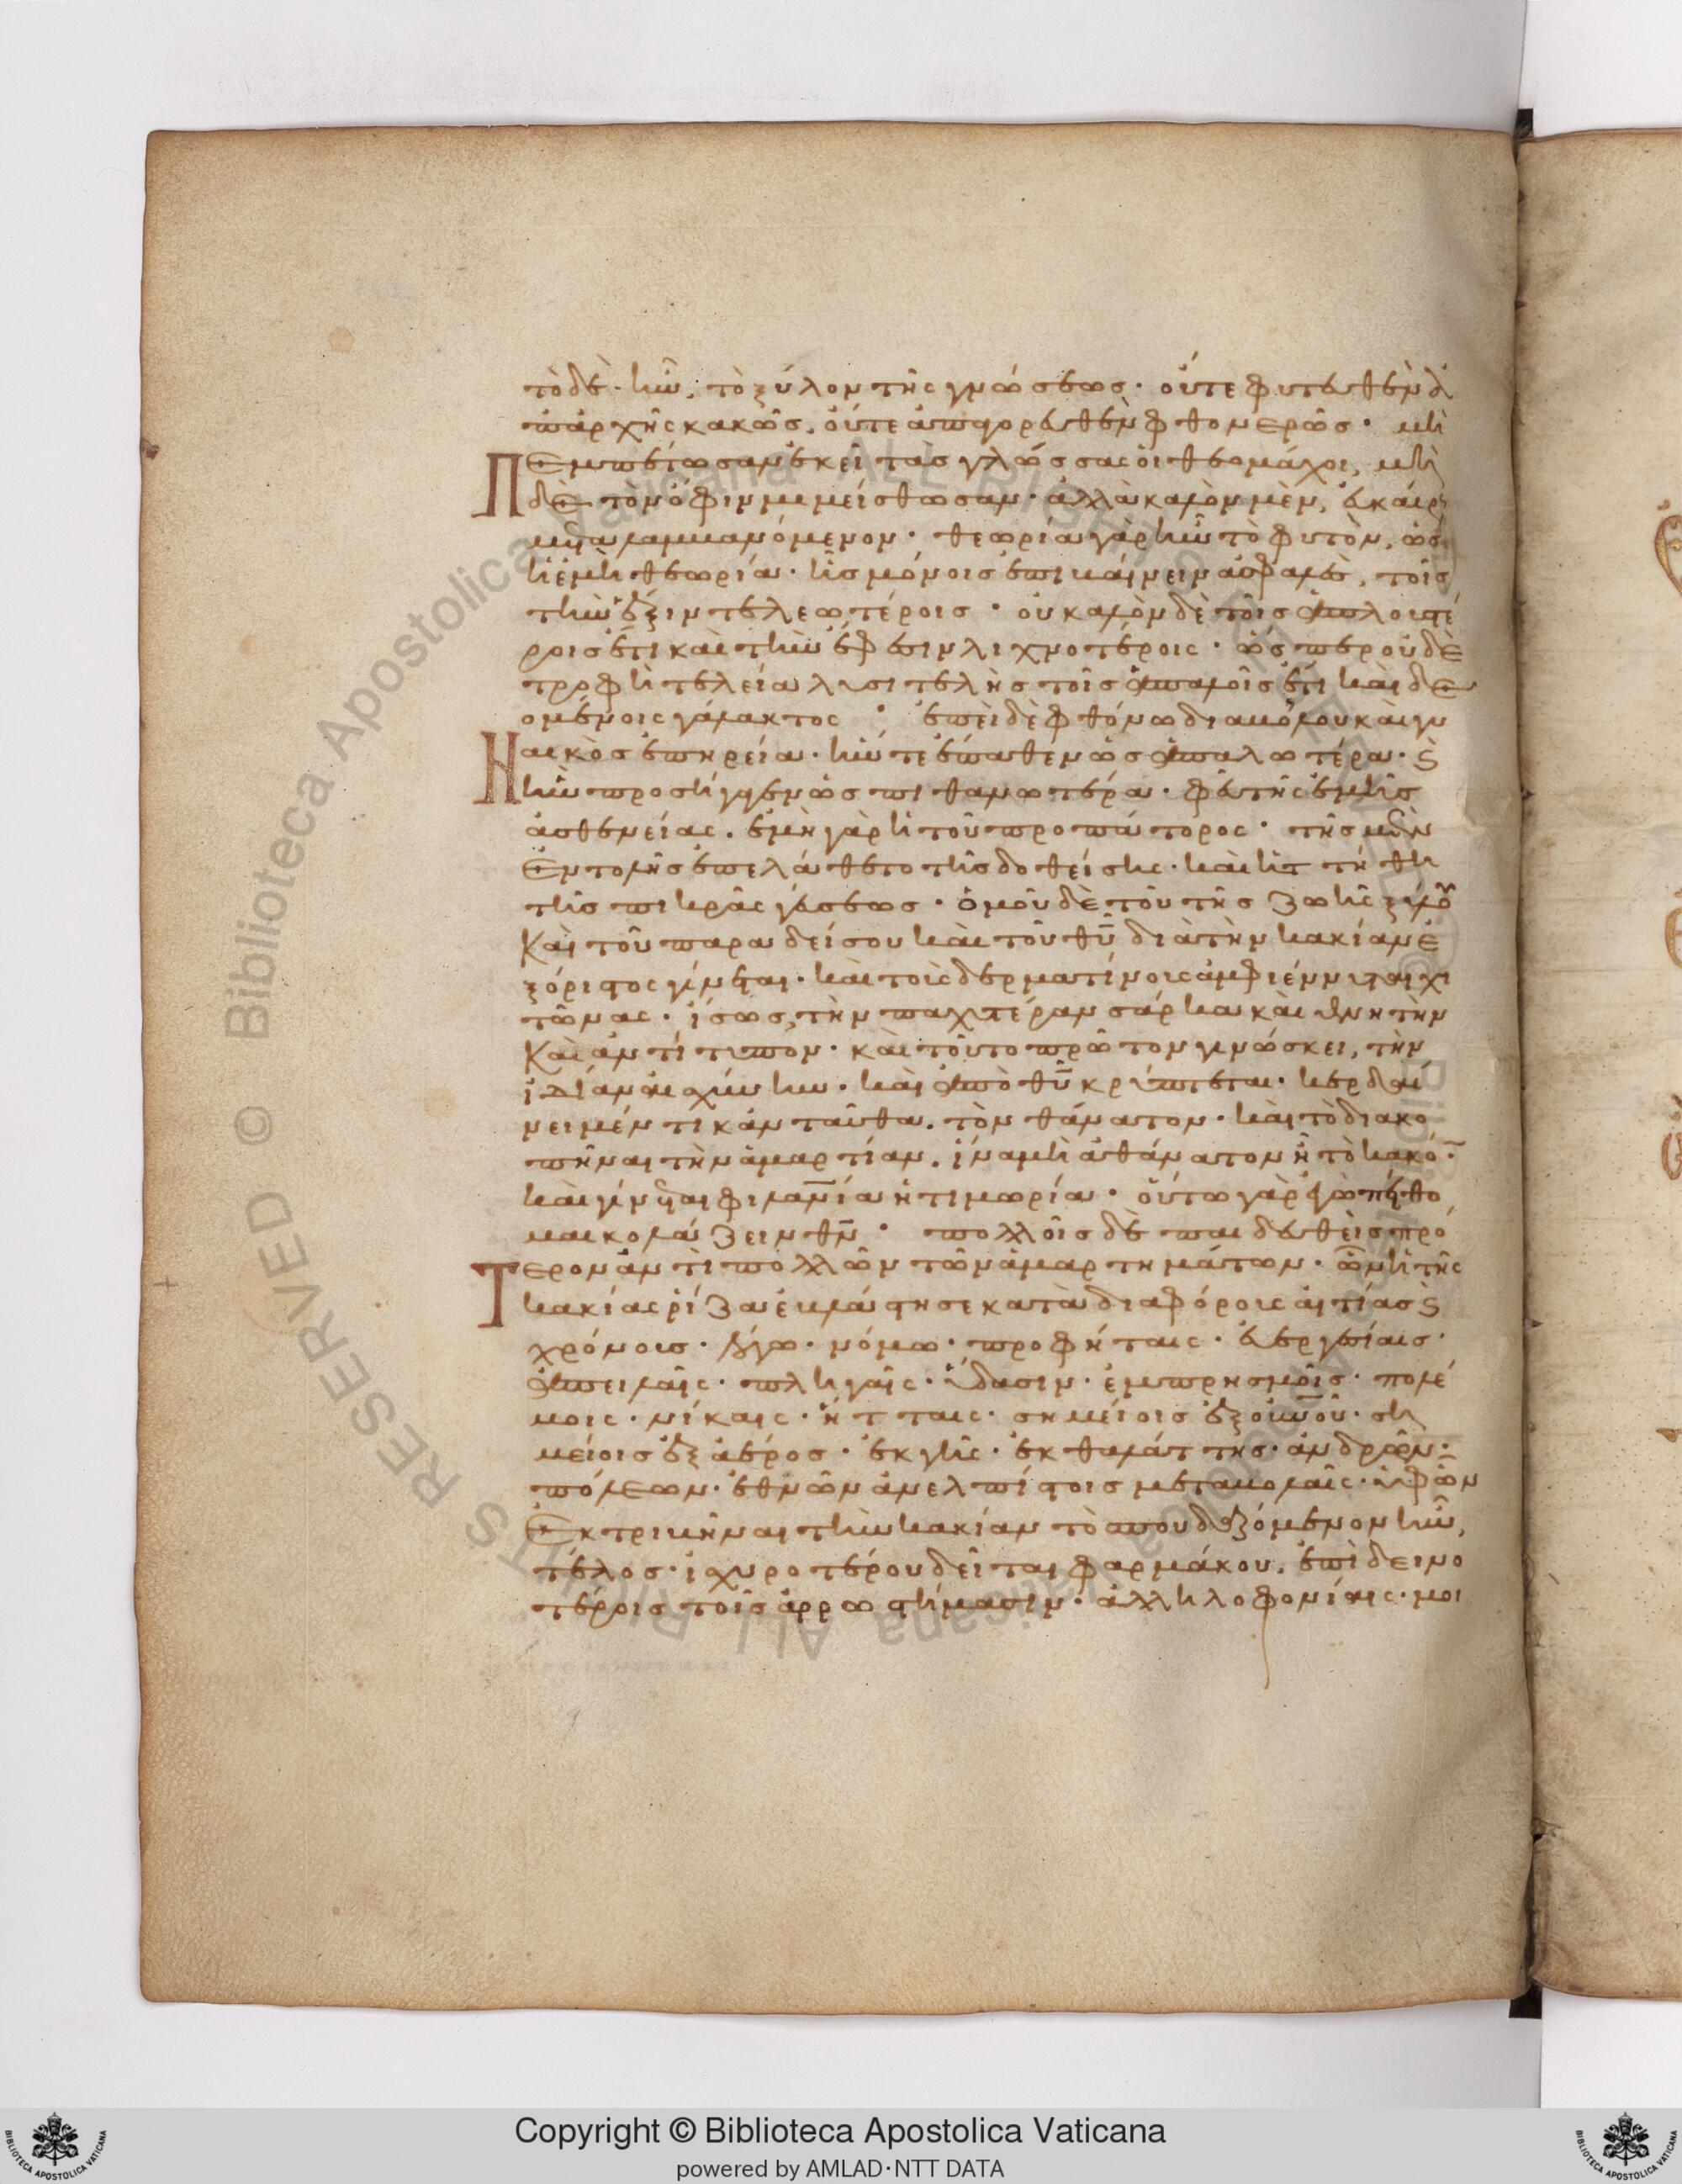 τὸ δὲ ἦν, τὸ ξύλον τῆς γνώσεως· οὔτε φυτευθὲν ἀ
π' ἀρχῆς κακῶς, οὔτε ἀπαγορευθὲν φθονερῶς· μὴ
Πεμπέτωσαν ἐκεῖ τὰς γλώσσας οἱ θεομάχοι, μη
δὲ τὸν ὄφιν μιμείσθωσαν· ἀλλὰ καλὸν μὲν, εὐκαίρως
μεταλαμβανόμενον· θεωρία γὰρ ἦν τὸ φυτὸν, ὡς
ἡ ἐμὴ θεωρία· ἧς μόνοις ἐπιβαίνειν ἀσφαλὲς, τοῖς
τὴν ἕξιν τελεωτέροις· οὐ καλὸν δὲ τοῖς ἁπλουστέ
ροις ἔτι καὶ τὴν ἔφεσιν λιχνοτέροις· ὥσπερ οὐδὲ
τροφὴ τελεία λυσιτελὴς τοῖς ἁπαλοῖς ἔτι καὶ δε
ομένοις γάλακτος· ἐπεὶ δὲ φθόνω διαβόλου καὶ γυ
Ηναικὸς ἐπηρεία· ἥν τε ἔπαθεν ὡς ἁπαλωτέρα· ϛ
ἣν προσήγαγεν ὡς πιθανωτέρα· φεῦ τῆς ἐμῆς
ἀσθενείας. ἐμὴ γὰρ ἡ τοῦ προπάτορος· τῆς μὲν
ἐντολῆς ἐπελάθετο τῆς δοθείσης· καὶ ἡττήθη
τῆς πικρᾶς γεύσεως· ὁμοῦ δὲ τοῦ τῆς ζωῆς ξύλου
Καὶ τοῦ παραδείσου καὶ τοῦ θῦ διὰ τὴν κακίαν ἐ
ξόριστος γίνεται· καὶ τοὺς δερματίνους ἀμφιέννυται χι
τῶνας· ἴσως, τὴν παχυτέραν σάρκα καὶ θνητὴν
Καὶ ἀντίτυπον· καὶ τοῦτο πρῶτον γινώσκει, τὴν
ἰδίαν αἰσχύνην· καὶ ἀπὸ θῦ κρύπτεται· κερδαί
νει μέν τι κἀνταῦθα. τὸν θάνατον· καὶ τὸ διακο
πῆναι τὴν ἁμαρτίαν. ἵνα μὴ ἀθάνατον ᾖ τὸ κακόν·
καὶ γίνεται φιλανία ἡ τιμωρία· οὕτω γὰρ ἐγὼ πείθο
μαι κολάζειν θν· πολλοῖς δὲ παιδευθεὶς πρό
Τερον ἀντὶ πολλῶν τῶν ἁμαρτημάτων· ὧν ἡ τῆς
κακίας ῥίζα ἐβλάστησε κατὰ διαφόρους αἰτίας ϛ
χρόνους· λόγω· νόμω· προφήταις· εὐεργεσίαις·
ἀπειλαῖς· πληγαῖς· ὕδασιν· ἐμπρησμοῖς· πολέ
μοις· νίκαις· ἥτταις· σημείοις ἐξ οὐνοῦ· ση
μείοις ἐξ ἀέρος· ἐκ γῆς· ἐκ θαλάττης· ἀνδρῶν·
πόλεων· ἐθνῶν ἀνελπίστοις μεταβολαῖς· ὑφ' ὧν
Ἐκτριβῆναι τὴν κακίαν τὸ σπουδαζόμενον ἦν,
τέλος· ἰσχυροτέρου δεῖται φαρμάκου, ἐπὶ δεινο
τέροις τοῖς ἀρρωστήμασιν· ἀλληλοφονίαις· μοι
Copyright © Biblioteca Apostolica Vaticana
powered by AMLAD·NTT DATA